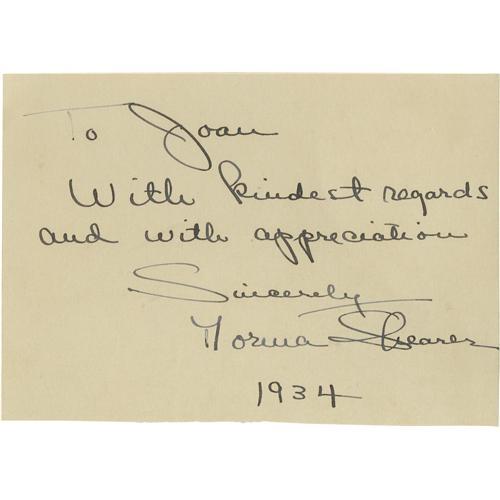 To Joan
With kindest regards
and with appreciation
Sincerely
Norma Shearer
1934